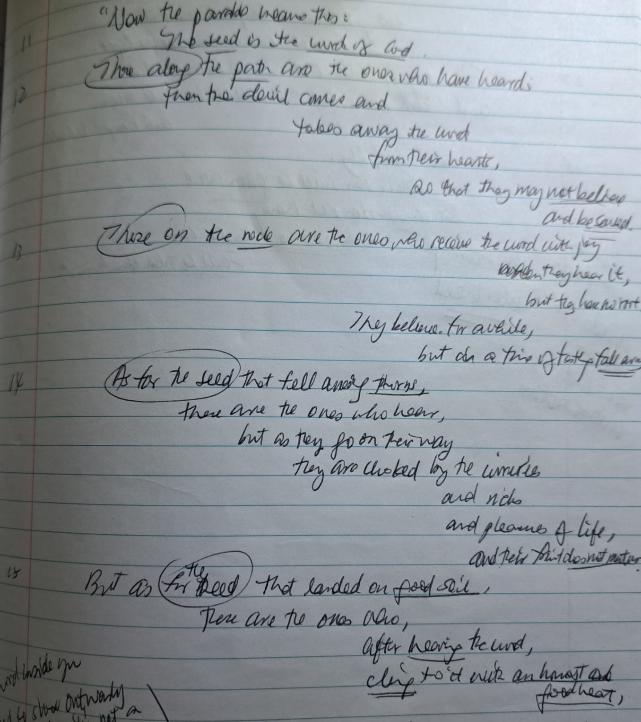 "Now the parable means this:
11 The seed is the word of God.
Those along the path are the ones who have heard;
12 then the devil comes and
takes away the word
from their hearts,
so that they may not believe
and be saved.
13 Those on the rock are the ones who receive the word with joy
when they hear it,
but they have no root
They believe for a while,
but in a time of testing fall away
14 As for the seed that fell among thorns,
these are the ones who hear,
but as they go on their way
they are choked by the worries
and riches
and pleasures of life,
and their fruit does not mature
15 But as for the seed that landed on good soil,
These are the ones who,
after hearing the word,
cling to it with an honest and
good heart,
word inside you
to show outwardly
not a